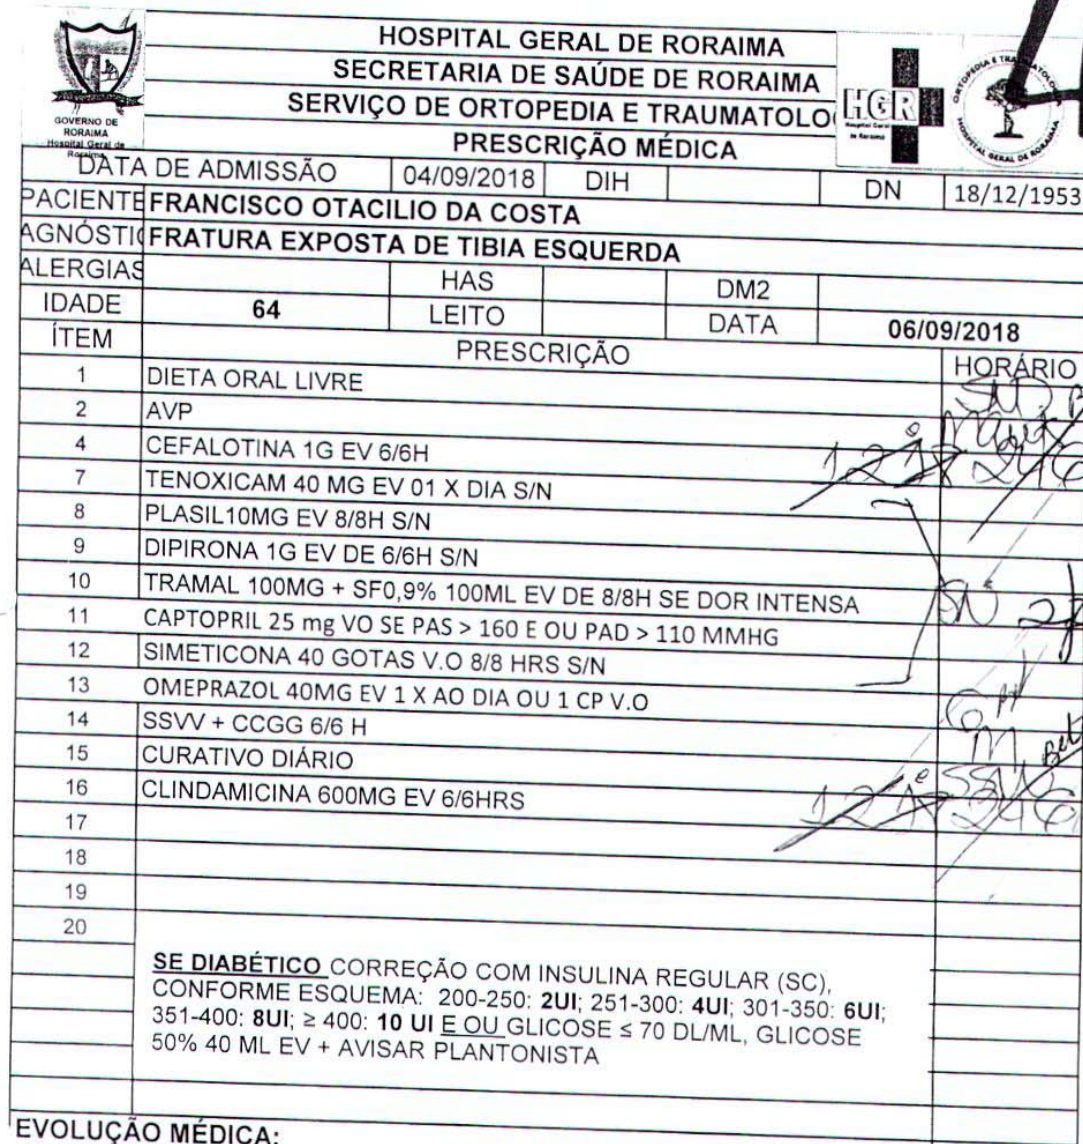 HOSPITAL GERAL DE RORAIMA
SECRETARIA DE SAÚDE DE RORAIMA
SERVIÇO DE ORTOPEDIA E TRAUMATOLO
PRESCRIÇÃO MÉDICA
GOVERNO DE
RORAIMA
Hospital Geral de
Roraima
HGR
Hospital Geral
de Roraima
ORTOPEDIA E TRAUMATOLOGIA
HOSPITAL GERAL DE RORAIMA
DATA DE ADMISSÃO 04/09/2018 DIH DN 18/12/1953
PACIENTE FRANCISCO OTACILIO DA COSTA
AGNÓSTI FRATURA EXPOSTA DE TIBIA ESQUERDA
ALERGIAS HAS DM2
IDADE 64 LEITO DATA 06/09/2018
ÍTEM PRESCRIÇÃO HORÁRIO
1 DIETA ORAL LIVRE SND
2 AVP
4 CEFALOTINA 1G EV 6/6H 12 18 24 6
7 TENOXICAM 40 MG EV 01 X DIA S/N
8 PLASIL10MG EV 8/8H S/N
9 DIPIRONA 1G EV DE 6/6H S/N
10 TRAMAL 100MG + SF0,9% 100ML EV DE 8/8H SE DOR INTENSA SN
11 CAPTOPRIL 25 mg VO SE PAS > 160 E OU PAD > 110 MMHG
12 SIMETICONA 40 GOTAS V.O 8/8 HRS S/N
13 OMEPRAZOL 40MG EV 1 X AO DIA OU 1 CP V.O 6
14 SSVV + CCGG 6/6 H M
15 CURATIVO DIÁRIO
16 CLINDAMICINA 600MG EV 6/6HRS 12 18 24 6
17
18
19
20
SE DIABÉTICO CORREÇÃO COM INSULINA REGULAR (SC),
CONFORME ESQUEMA: 200-250: 2UI; 251-300: 4UI; 301-350: 6UI;
351-400: 8UI; ≥ 400: 10 UI E OU GLICOSE ≤ 70 DL/ML, GLICOSE
50% 40 ML EV + AVISAR PLANTONISTA
EVOLUÇÃO MÉDICA: